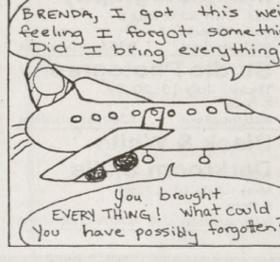 BRENDA, I got this wei
feeling I forgot somethi
Did I bring everything
You brought
EVERY THING! What could
You have possibly forgotten